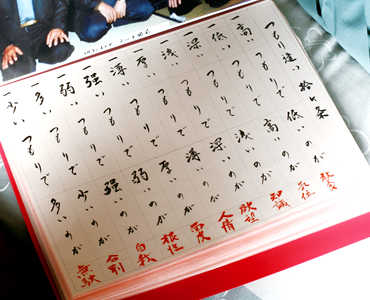 つもり違い拾ヶ条
一高いつもりで低いのが教養
一低いつもりで高いのが気位
一深いつもりで浅いのが知識
一浅いつもりで深いのが欲望
一厚いつもりで薄いのが人情
一薄いつもりで厚いのが面皮
一強いつもりで弱いのが根性
一弱いつもりで強いのが自我
一多いつもりで少いのが分別
一少いつもりで多いのが無駄